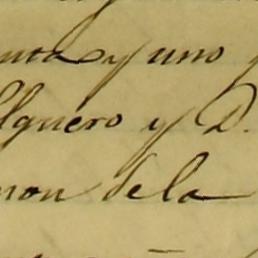 nta y uno y
lguero y D.
mon de la